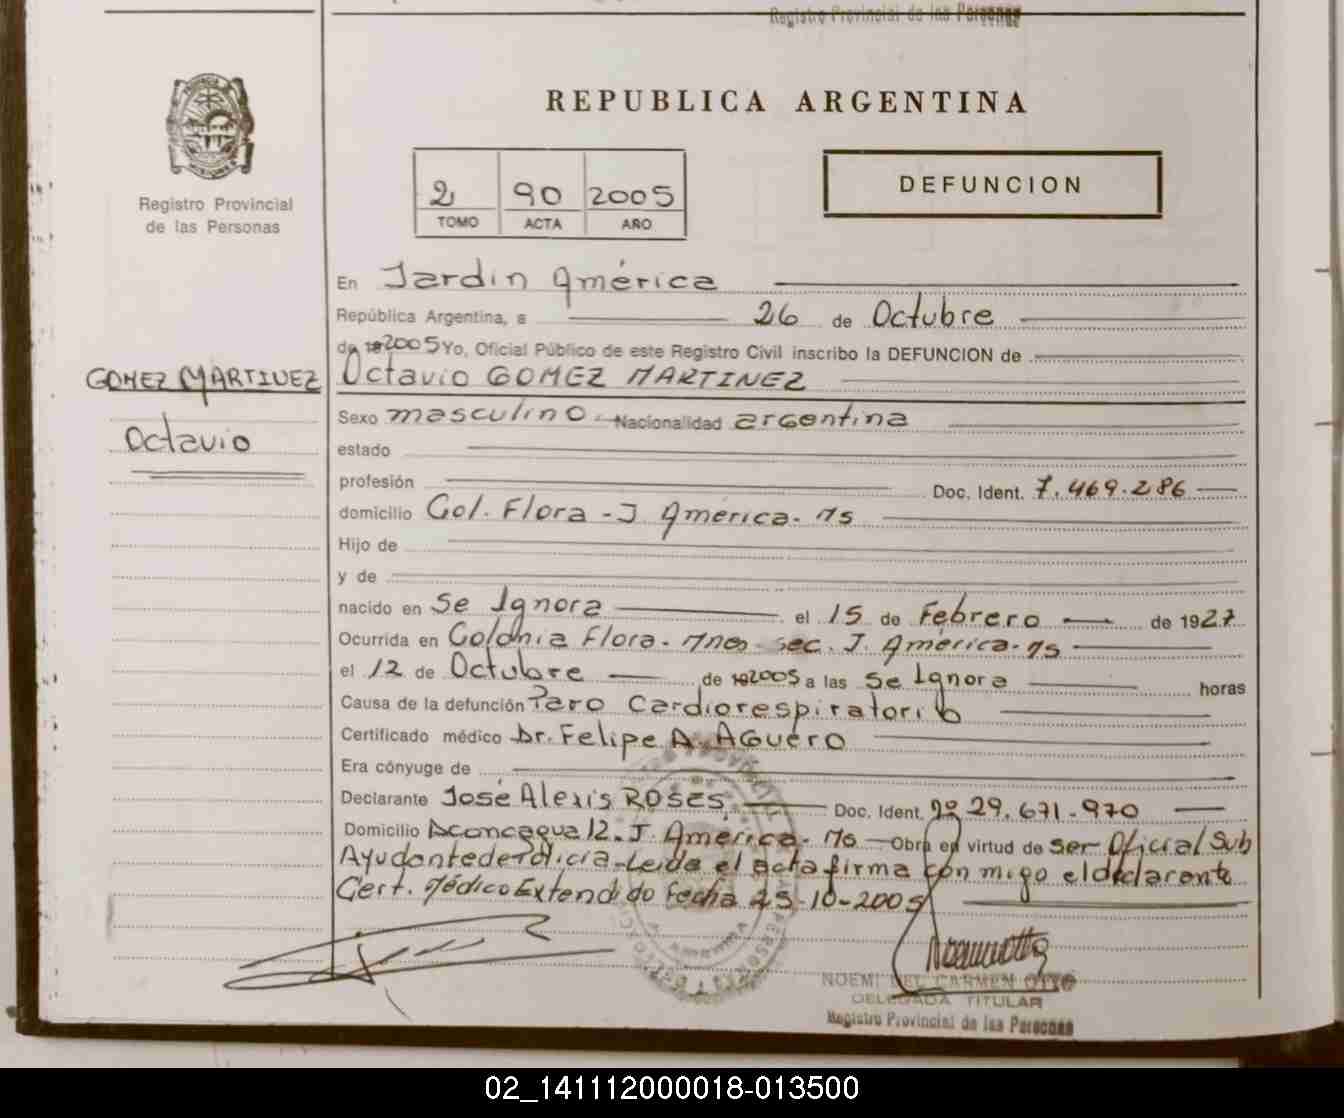 Registro Provincial de las Personas
REPUBLICA ARGENTINA
2 90 2005
TOMO ACTA AÑO
DEFUNCION
Registro Provincial
de las Personas
En Jardin América
República Argentina, a 26 de Octubre
de 2005 Yo, Oficial Público de este Registro Civil inscribo la DEFUNCION de
GOMEZ MARTINEZ
Octavio
Octavio GOMEZ MARTINEZ
Sexo masculino - Nacionalidad argentina
estado
profesión Doc. Ident. 7.469.286
domicilio Col. Flora - J. América - Ms
Hijo de
y de
nacido en Se Ignora el 15 de Febrero de 1927
Ocurrida en Colonia Flora - Mnes - sec. J. América - Ms
el 12 de Octubre de 2005 a las Se Ignora horas
Causa de la defunción Paro Cardiorespiratorio
Certificado médico Dr. Felipe A. AGUERO
Era cónyuge de
Declarante José Alexis ROSES Doc. Ident. Nº 29.671.970
Domicilio Aconcagua 12 - J. América - Ms - Obra en virtud de ser Oficial Sub
Ayudante de Policia - Leida el acta firma con migo el declarante
Cert. Médico Extendido Fecha 25-10-2005
NOEMI DEL CARMEN OTTO
DELEGADA TITULAR
Registro Provincial de las Personas
02_141112000018-013500